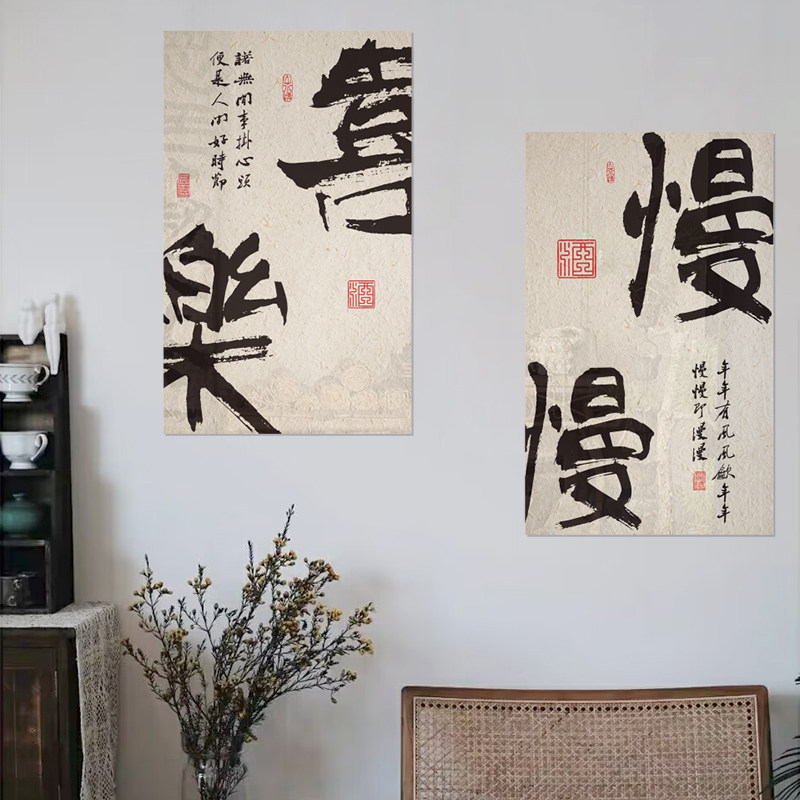 喜
樂
諾無閒事掛心頭
便是人間好時節
慢
慢
年年有風風年年
慢慢即漫漫